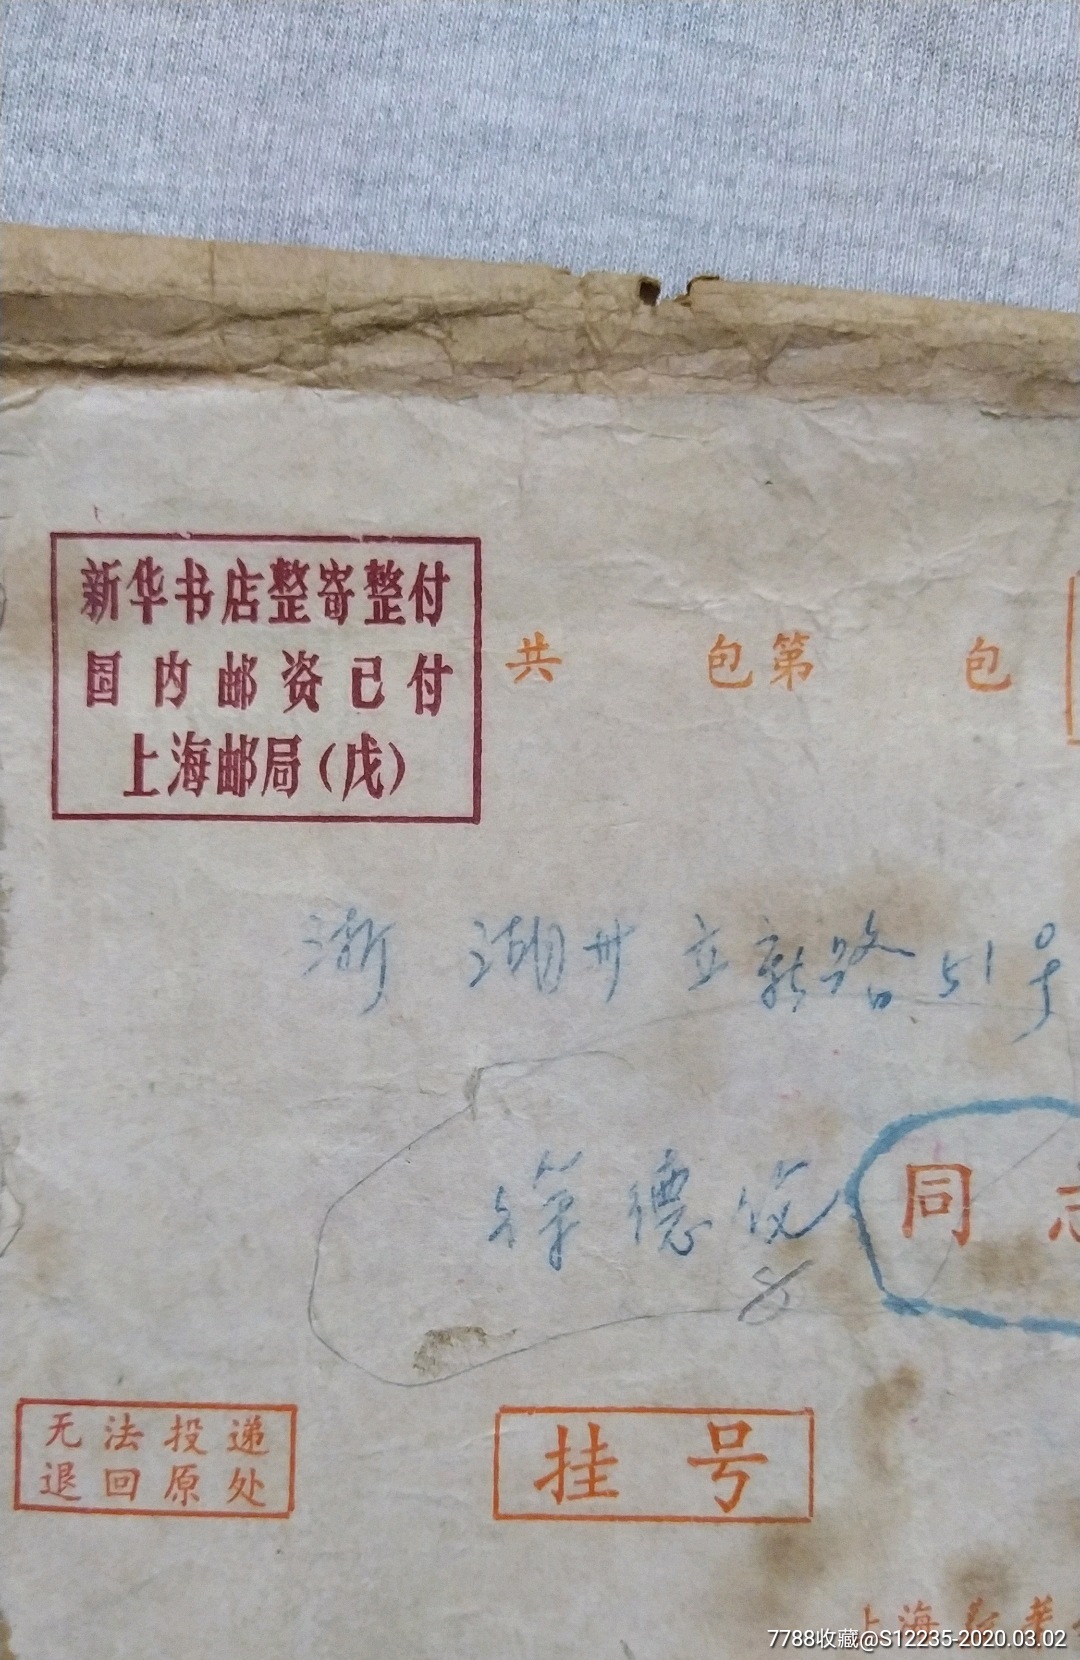 新华书店整寄整付
国内邮资已付
上海邮局(戊)
共 包第 包
浙 湖州 立新路51号
德 同
无法投递
退回原处
挂号
上海新华
7788收藏@S12235-2020.03.02